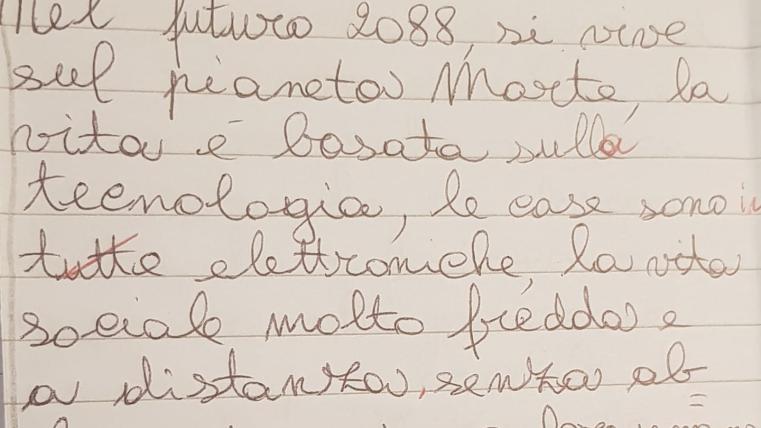 Nel futuro 2088, si vive
sul pianeta Marte, la
vita è basata sulla
tecnologia, le case sono
tutte elettroniche, la vita
sociale molto fredda e
a distanza, senza ab=